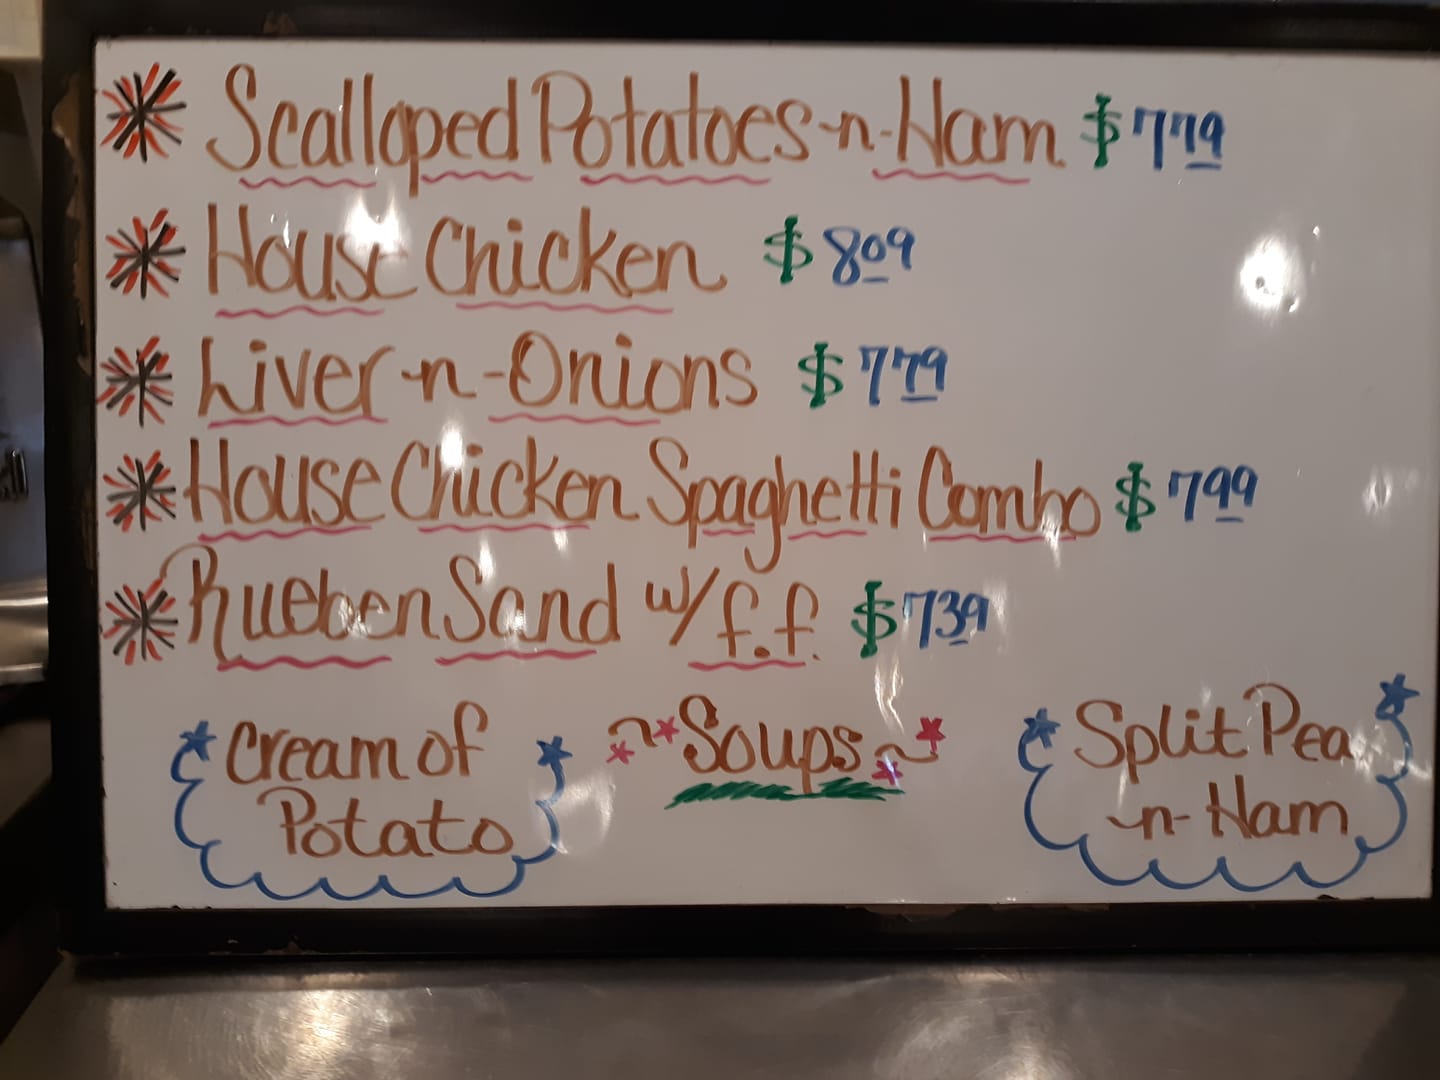 Scalloped Potatoes-n-Ham $7.79
House Chicken $8.09
Liver-n-Onions $7.79
House Chicken Spaghetti Combo $7.99
Rueben Sand w/ f.f. $7.39
~Soups~
Cream of
Potato
Split Pea
-n-Ham